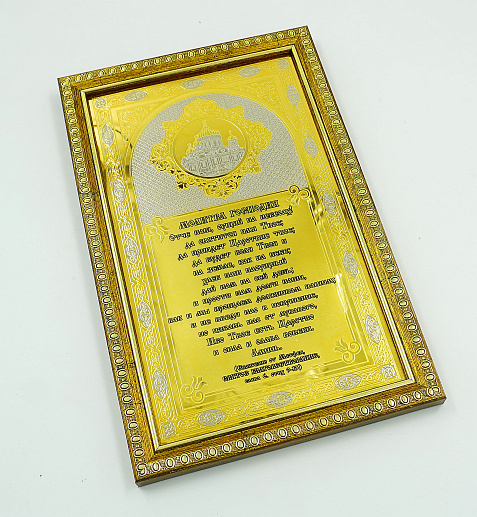 МОЛИТВА ГОСПОДНЯ
Отче наш, сущий на небесах!
да святится имя Твое;
да приидет Царствие Твое;
да будет воля Твоя и
на земле, как на небе;
хлеб наш насущный
дай нам на сей день;
и прости нам долги наши,
как и мы прощаем должникам нашим;
и не введи нас в искушение,
но избавь нас от лукавого.
Ибо Твое есть Царство
и сила и слава вовеки.
Аминь.
(Евангелие от Матфея,
СВЯТОЕ БЛАГОВЕСТВОВАНИЕ,
глава 6, стих 9-13)